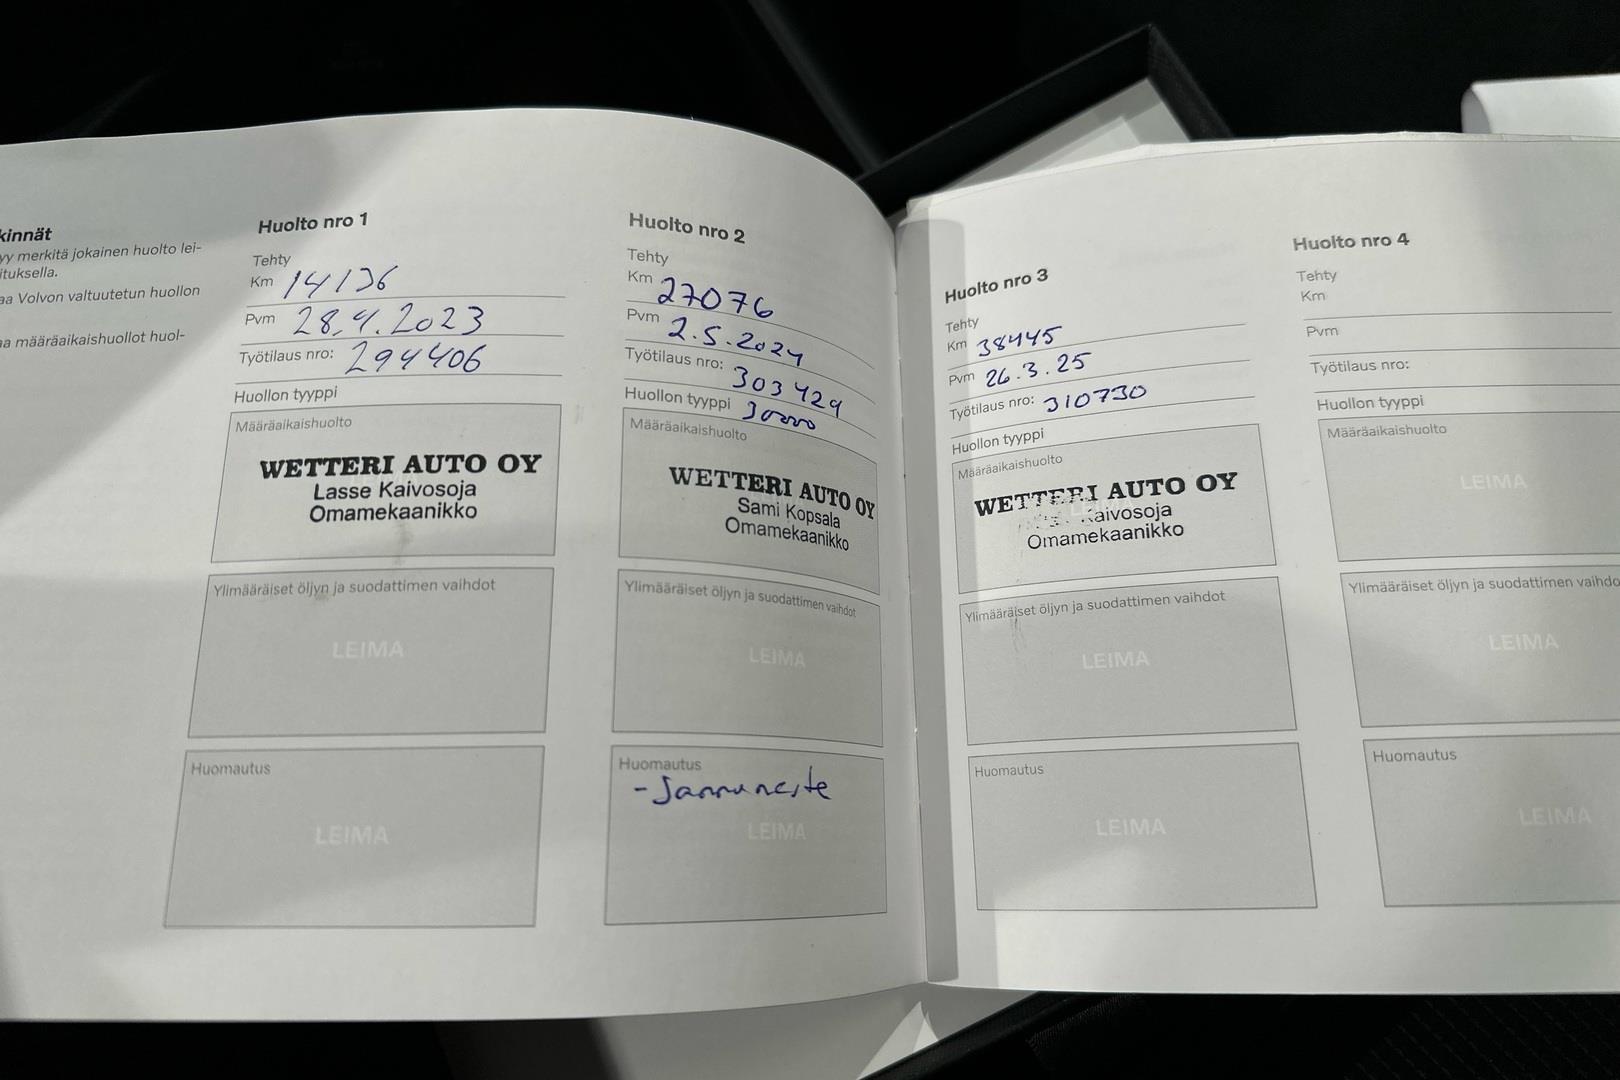 kinnät
yy merkitä jokainen huolto lei-
ituksella.
aa Volvon valtuutetun huollon
aa määräaikaishuollot huol-
Huolto nro 1
Tehty
Km 14136
Pvm 28.4.2023
Työtilaus nro: 294406
Huollon tyyppi
Määräaikaishuolto
WETTERI AUTO OY
Lasse Kaivosoja
Omamekaanikko
Ylimääräiset öljyn ja suodattimen vaihdot
LEIMA
Huomautus
LEIMA
Huolto nro 2
Tehty
Km 27076
Pvm 2.5.2024
Työtilaus nro: 303429
Huollon tyyppi 30000
Määräaikaishuolto
WETTERI AUTO OY
Sami Kopsala
Omamekaanikko
Ylimääräiset öljyn ja suodattimen vaihdot
LEIMA
Huomautus
- Jarruneste
LEIMA
Huolto nro 3
Tehty
Km 38445
Pvm 26.3.25
Työtilaus nro: 310730
Huollon tyyppi
Määräaikaishuolto
WETTERI AUTO OY
aivosoja
Omamekaanikko
Ylimääräiset öljyn ja suodattimen vaihdot
LEIMA
Huomautus
LEIMA
Huolto nro 4
Tehty
Km
Pvm
Työtilaus nro:
Huollon tyyppi
Määräaikaishuolto
LEIMA
Ylimääräiset öljyn ja suodattimen vaihdo
LEIMA
Huomautus
LEIMA